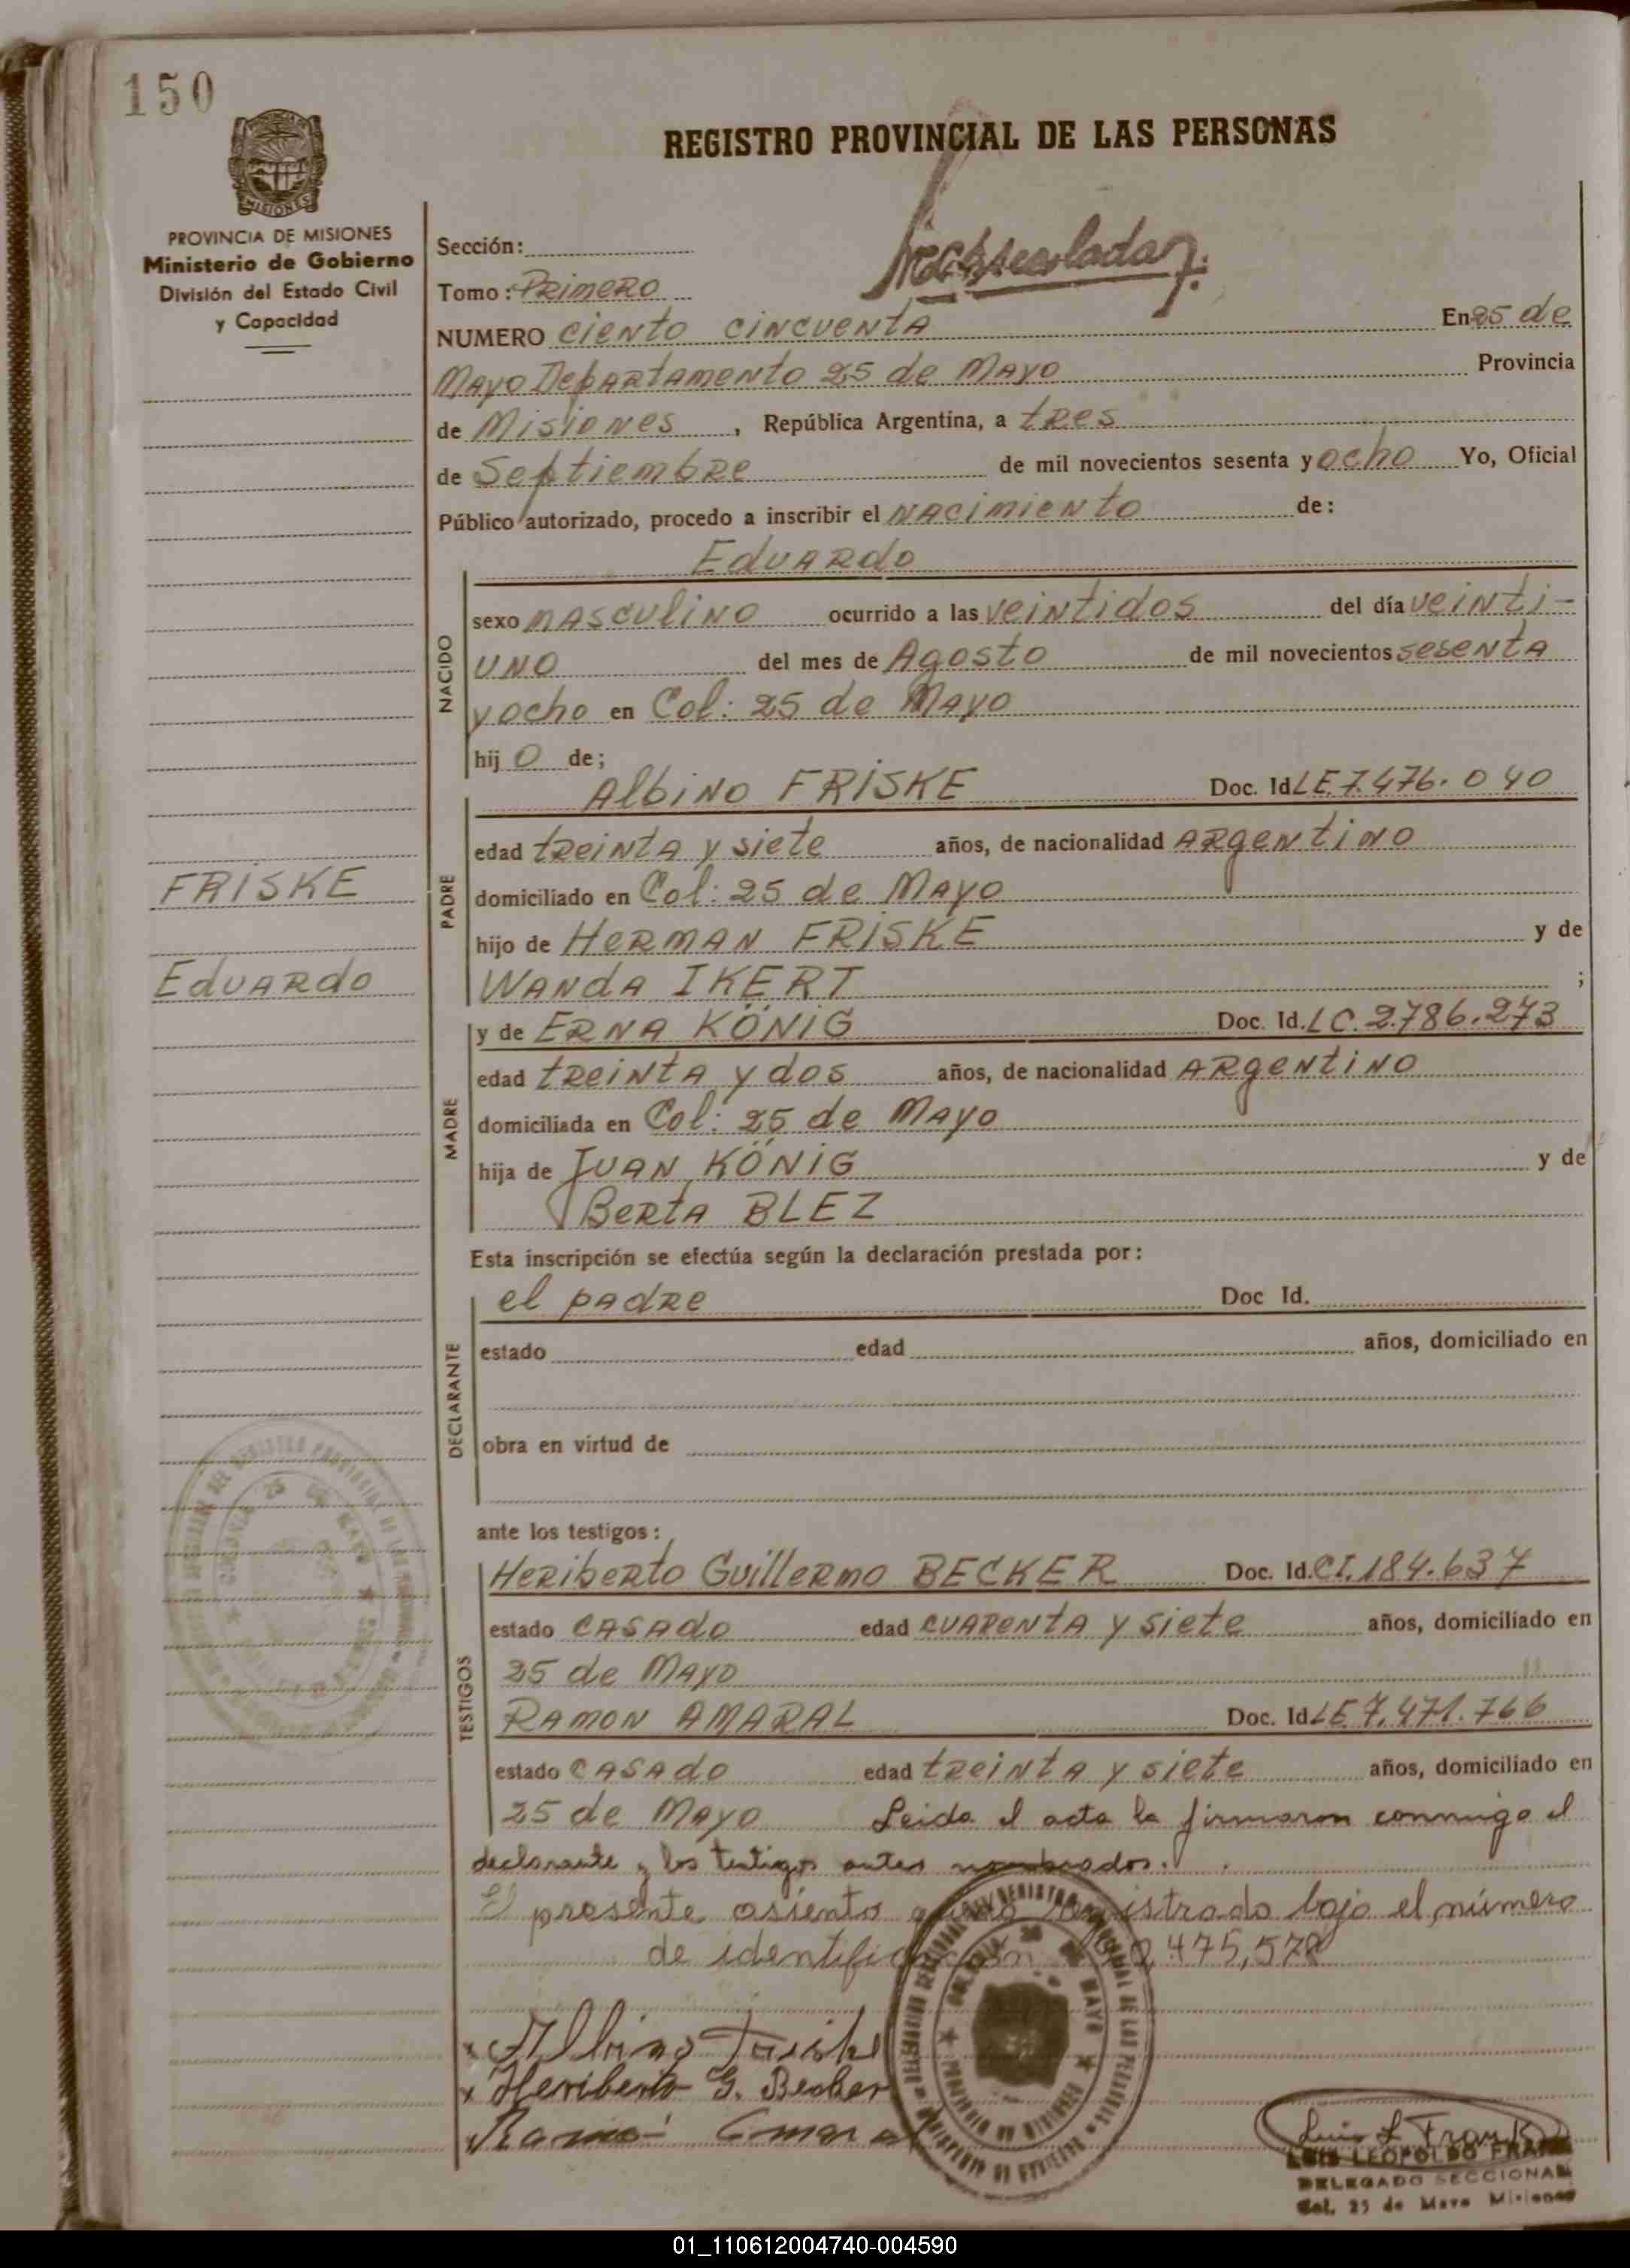 150
REGISTRO PROVINCIAL DE LAS PERSONAS
MISIONES
PROVINCIA DE MISIONES
Ministerio de Gobierno
División del Estado Civil
y Capacidad
Sección:
Tomo: Primero
NUMERO ciento cincuenta En 25 de
Mayo Departamento 25 de Mayo Provincia
de Misiones, República Argentina, a tres
de Septiembre de mil novecientos sesenta y ocho Yo, Oficial
Público autorizado, procedo a inscribir el nacimiento de:
Eduardo
NACIDO
sexo masculino ocurrido a las veintidos del día veinti-
uno del mes de Agosto de mil novecientos sesenta
y ocho en Col: 25 de Mayo
hijo de;
PADRE
Albino FRISKE Doc. Id LE.7.476.040
edad treinta y siete años, de nacionalidad Argentino
domiciliado en Col: 25 de Mayo
FRISKE
hijo de Herman FRISKE y de
Eduardo
Wanda IKERT ;
MADRE
y de Erna KÖNIG Doc. Id. LC.2.786.273
edad treinta y dos años, de nacionalidad Argentino
domiciliada en Col: 25 de Mayo
hija de Juan KÖNIG y de
Berta BLEZ
Esta inscripción se efectúa según la declaración prestada por:
DECLARANTE
el padre Doc Id.
estado edad años, domiciliado en
obra en virtud de
ante los testigos:
TESTIGOS
Heriberto Guillermo BECKER Doc. Id. CI.184.637
estado casado edad cuarenta y siete años, domiciliado en
25 de Mayo
Ramon AMARAL Doc. Id LE 7.471.766
estado casado edad treinta y siete años, domiciliado en
25 de Mayo Leida el acta la firmaron conmigo el
declarante y los testigos antes nombrados.
El presente asiento queda registrado bajo el número
de identificación 475,578
Albino Friske
Heriberto G. Becker
Ramon Amaral
Luis L Frank
LUIS LEOPOLDO FRANK
DELEGADO SECCIONAL
Col. 25 de Mayo Misiones
01_110612004740-004590